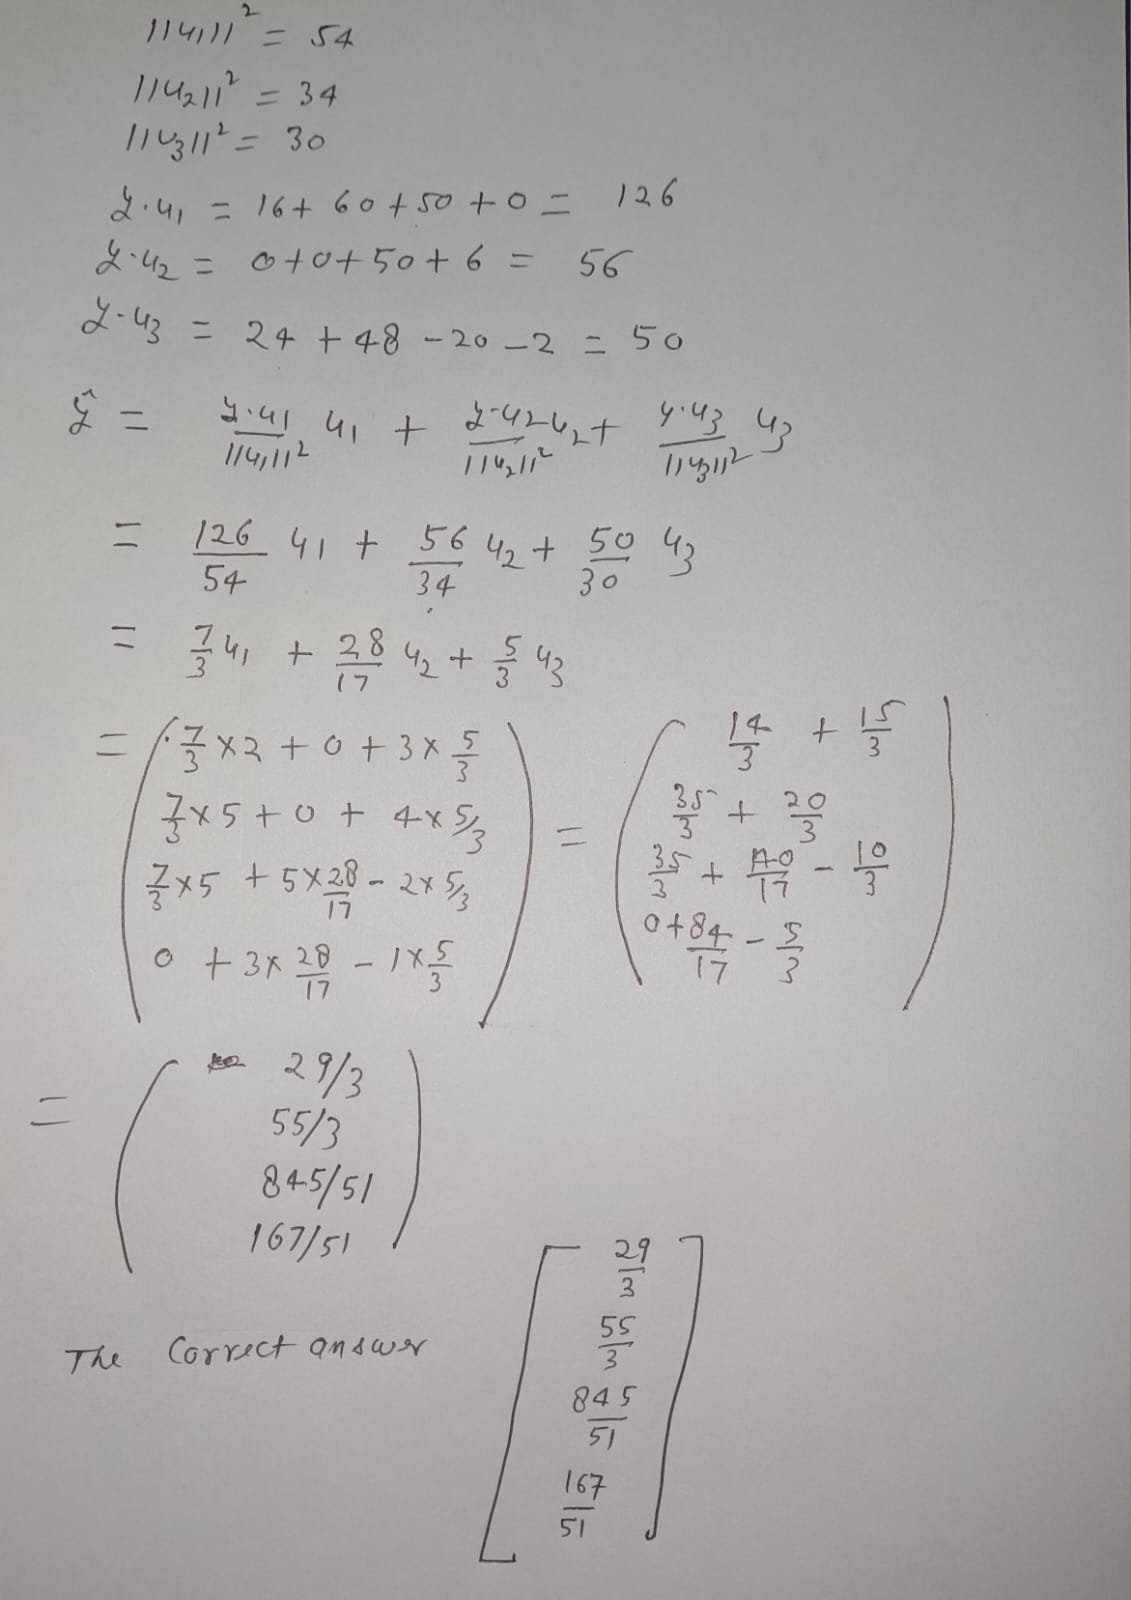 ||u₁||² = 54
||u₂||² = 34
||u₃||² = 30
y·u₁ = 16 + 60 + 50 + 0 = 126
y·u₂ = 0 + 0 + 50 + 6 = 56
y·u₃ = 24 + 48 - 20 - 2 = 50
ŷ = y·u₁/||u₁||² u₁ + y·u₂/||u₂||² u₂ + y·u₃/||u₃||² u₃
= 126/54 u₁ + 56/34 u₂ + 50/30 u₃
= 7/3 u₁ + 28/17 u₂ + 5/3 u₃
= ( 7/3 × 2 + 0 + 3 × 5/3 ) = ( 14/3 + 15/3 )
7/3 × 5 + 0 + 4 × 5/3 35/3 + 20/3
7/3 × 5 + 5 × 28/17 - 2 × 5/3 35/3 + 140/17 - 10/3
0 + 3 × 28/17 - 1 × 5/3 0 + 84/17 - 5/3
= ( 29/3 )
55/3
845/51
167/51
The Correct answer [ 29/3 ]
55/3
845/51
167/51